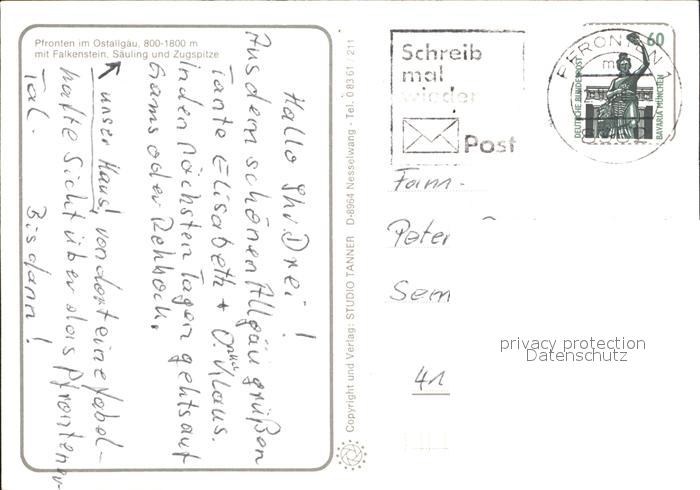 Pfronten im Ostallgäu, 800-1800 m
mit Falkenstein, Säuling und Zugspitze
Hallo Ihr Drei!
Aus dem schönen Allgäu grüßen
Tante Elisabeth + Onkel Klaus.
In den nächsten Tagen gehts auf
Gams oder Rehbock.
↑ unser Haus, von dort eine fabel-
hafte Sicht über das Pfrontener
Tal. Bis dann!
Copyright und Verlag: STUDIO TANNER D-8964 Nesselwang - Tel. 08361/211
Schreib
mal
wieder
Post
PFRONTEN
60
DEUTSCHE BUNDESPOST
BAVARIA MÜNCHEN
Fam.
Peter
Sem
41
privacy protection
Datenschutz